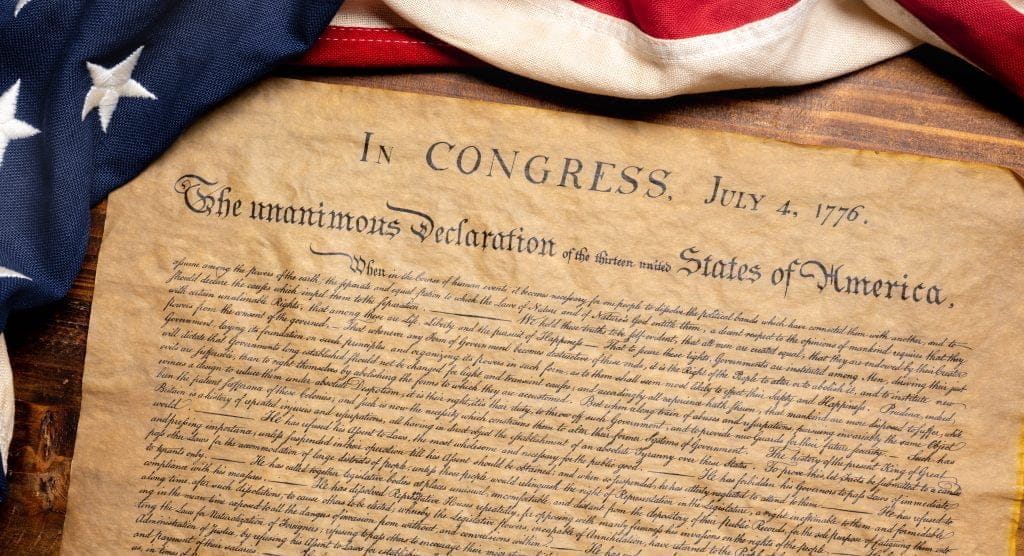 In CONGRESS, July 4, 1776.
The unanimous Declaration of the thirteen united States of America,
When in the Course of human events, it becomes necessary for one people to dissolve the political bands which have connected them with another, and to
assume among the powers of the earth, the separate and equal station to which the Laws of Nature and of Nature's God entitle them, a decent respect to the opinions of mankind requires that they
should declare the causes which impel them to the separation. We hold these truths to be self-evident, that all men are created equal, that they are endowed by their Creator
with certain unalienable Rights, that among these are Life, Liberty and the pursuit of Happiness. — That to secure these rights, Governments are instituted among Men, deriving their just
powers from the consent of the governed, — That whenever any Form of Government becomes destructive of these ends, it is the Right of the People to alter or to abolish it, and to institute new
Government, laying its foundation on such principles and organizing its powers in such form, as to them shall seem most likely to effect their Safety and Happiness. Prudence, indeed,
will dictate that Governments long established should not be changed for light and transient causes; and accordingly all experience hath shewn, that mankind are more disposed to suffer, while
evils are sufferable, than to right themselves by abolishing the forms to which they are accustomed. But when a long train of abuses and usurpations, pursuing invariably the same Object
evinces a design to reduce them under absolute Despotism, it is their right, it is their duty, to throw off such Government, and to provide new Guards for their future security. — Such has
been the patient sufferance of these Colonies; and such is now the necessity which constrains them to alter their former Systems of Government. The history of the present King of Great
Britain is a history of repeated injuries and usurpations, all having in direct object the establishment of an absolute Tyranny over these States. To prove this, let Facts be submitted to a candid
world. He has refused his Assent to Laws, the most wholesome and necessary for the public good. He has forbidden his Governors to pass Laws of immediate
and pressing importance, unless suspended in their operation till his Assent should be obtained; and when so suspended, he has utterly neglected to attend to them. He has refused to
pass other Laws for the accommodation of large districts of people, unless those people would relinquish the right of Representation in the Legislature, a right inestimable to them and formidable
to tyrants only. He has called together legislative bodies at places unusual, uncomfortable, and distant from the depository of their Public Records, for the sole purpose of fatiguing them
compliance with his measures. He has dissolved Representative Houses repeatedly, for opposing with manly firmness his invasions on the rights of the people.
along time, after such dissolutions, to cause others to be elected; whereby the Legislative powers, incapable of Annihilation, have returned to the People
ing in the mean time exposed to all the dangers of invasion from without, and convulsions within. He has
ing the Laws for Naturalization of Foreigners; refusing to pass others to encourage their
Administration of Justice, by refusing his Assent to Laws for
and payment of their salaries.
as, in times